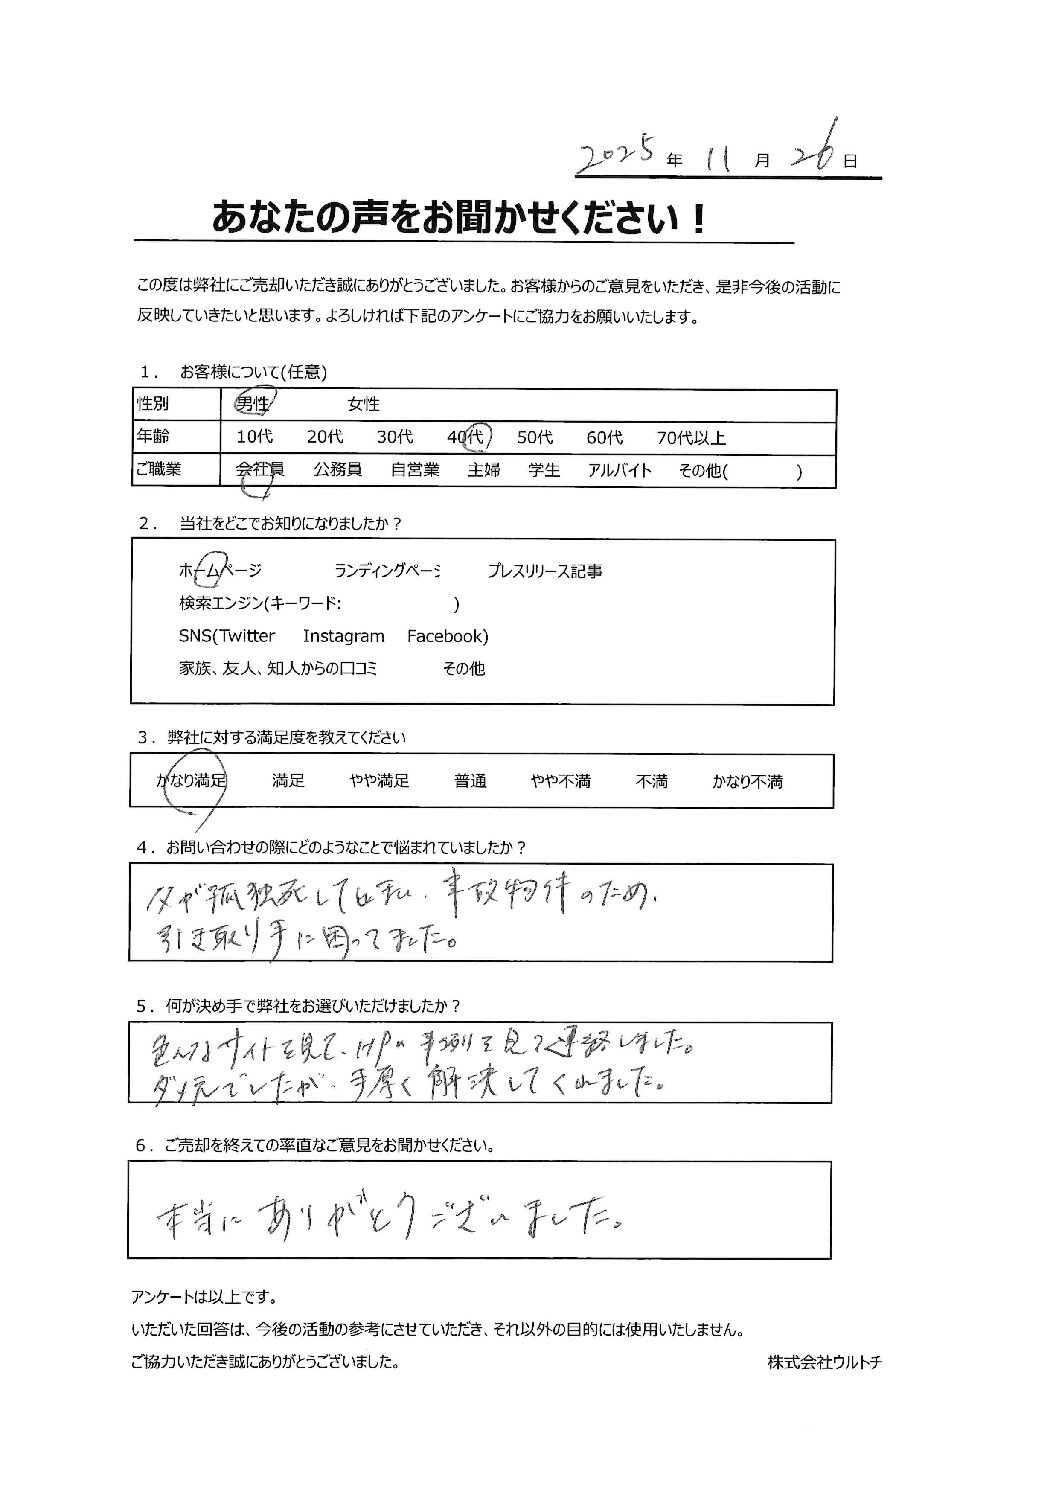 2025年 11月 26日
あなたの声をお聞かせください！
この度は弊社にご売却いただき誠にありがとうございました。お客様からのご意見をいただき、是非今後の活動に
反映していきたいと思います。よろしければ下記のアンケートにご協力をお願いいたします。
1． お客様について(任意)
性別 男性 女性
年齢 10代 20代 30代 40代 50代 60代 70代以上
ご職業 会社員 公務員 自営業 主婦 学生 アルバイト その他( )
2． 当社をどこでお知りになりましたか？
ホームページ ランディングページ プレスリリース記事
検索エンジン(キーワード: )
SNS(Twitter Instagram Facebook)
家族、友人、知人からの口コミ その他
3．弊社に対する満足度を教えてください
かなり満足 満足 やや満足 普通 やや不満 不満 かなり不満
4．お問い合わせの際にどのようなことで悩まれていましたか？
父が孤独死してしまい、事故物件のため、
引き取り手に困ってました。
5．何が決め手で弊社をお選びいただけましたか？
色んなサイトを見て、HPの事例を見て連絡しました。
ダメ元でしたが、手厚く解決してくれました。
6．ご売却を終えての率直なご意見をお聞かせください。
本当にありがとうございました。
アンケートは以上です。
いただいた回答は、今後の活動の参考にさせていただき、それ以外の目的には使用いたしません。
ご協力いただき誠にありがとうございました。
株式会社ウルトチ